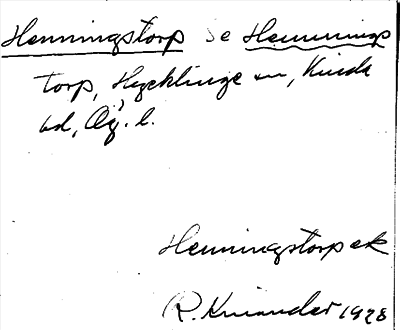 Henningstorp Se Hemmings
torp, Hycklinge sn, Kinda
hd, Ög. l.
Henningstorp ek
R. Kinander 1928